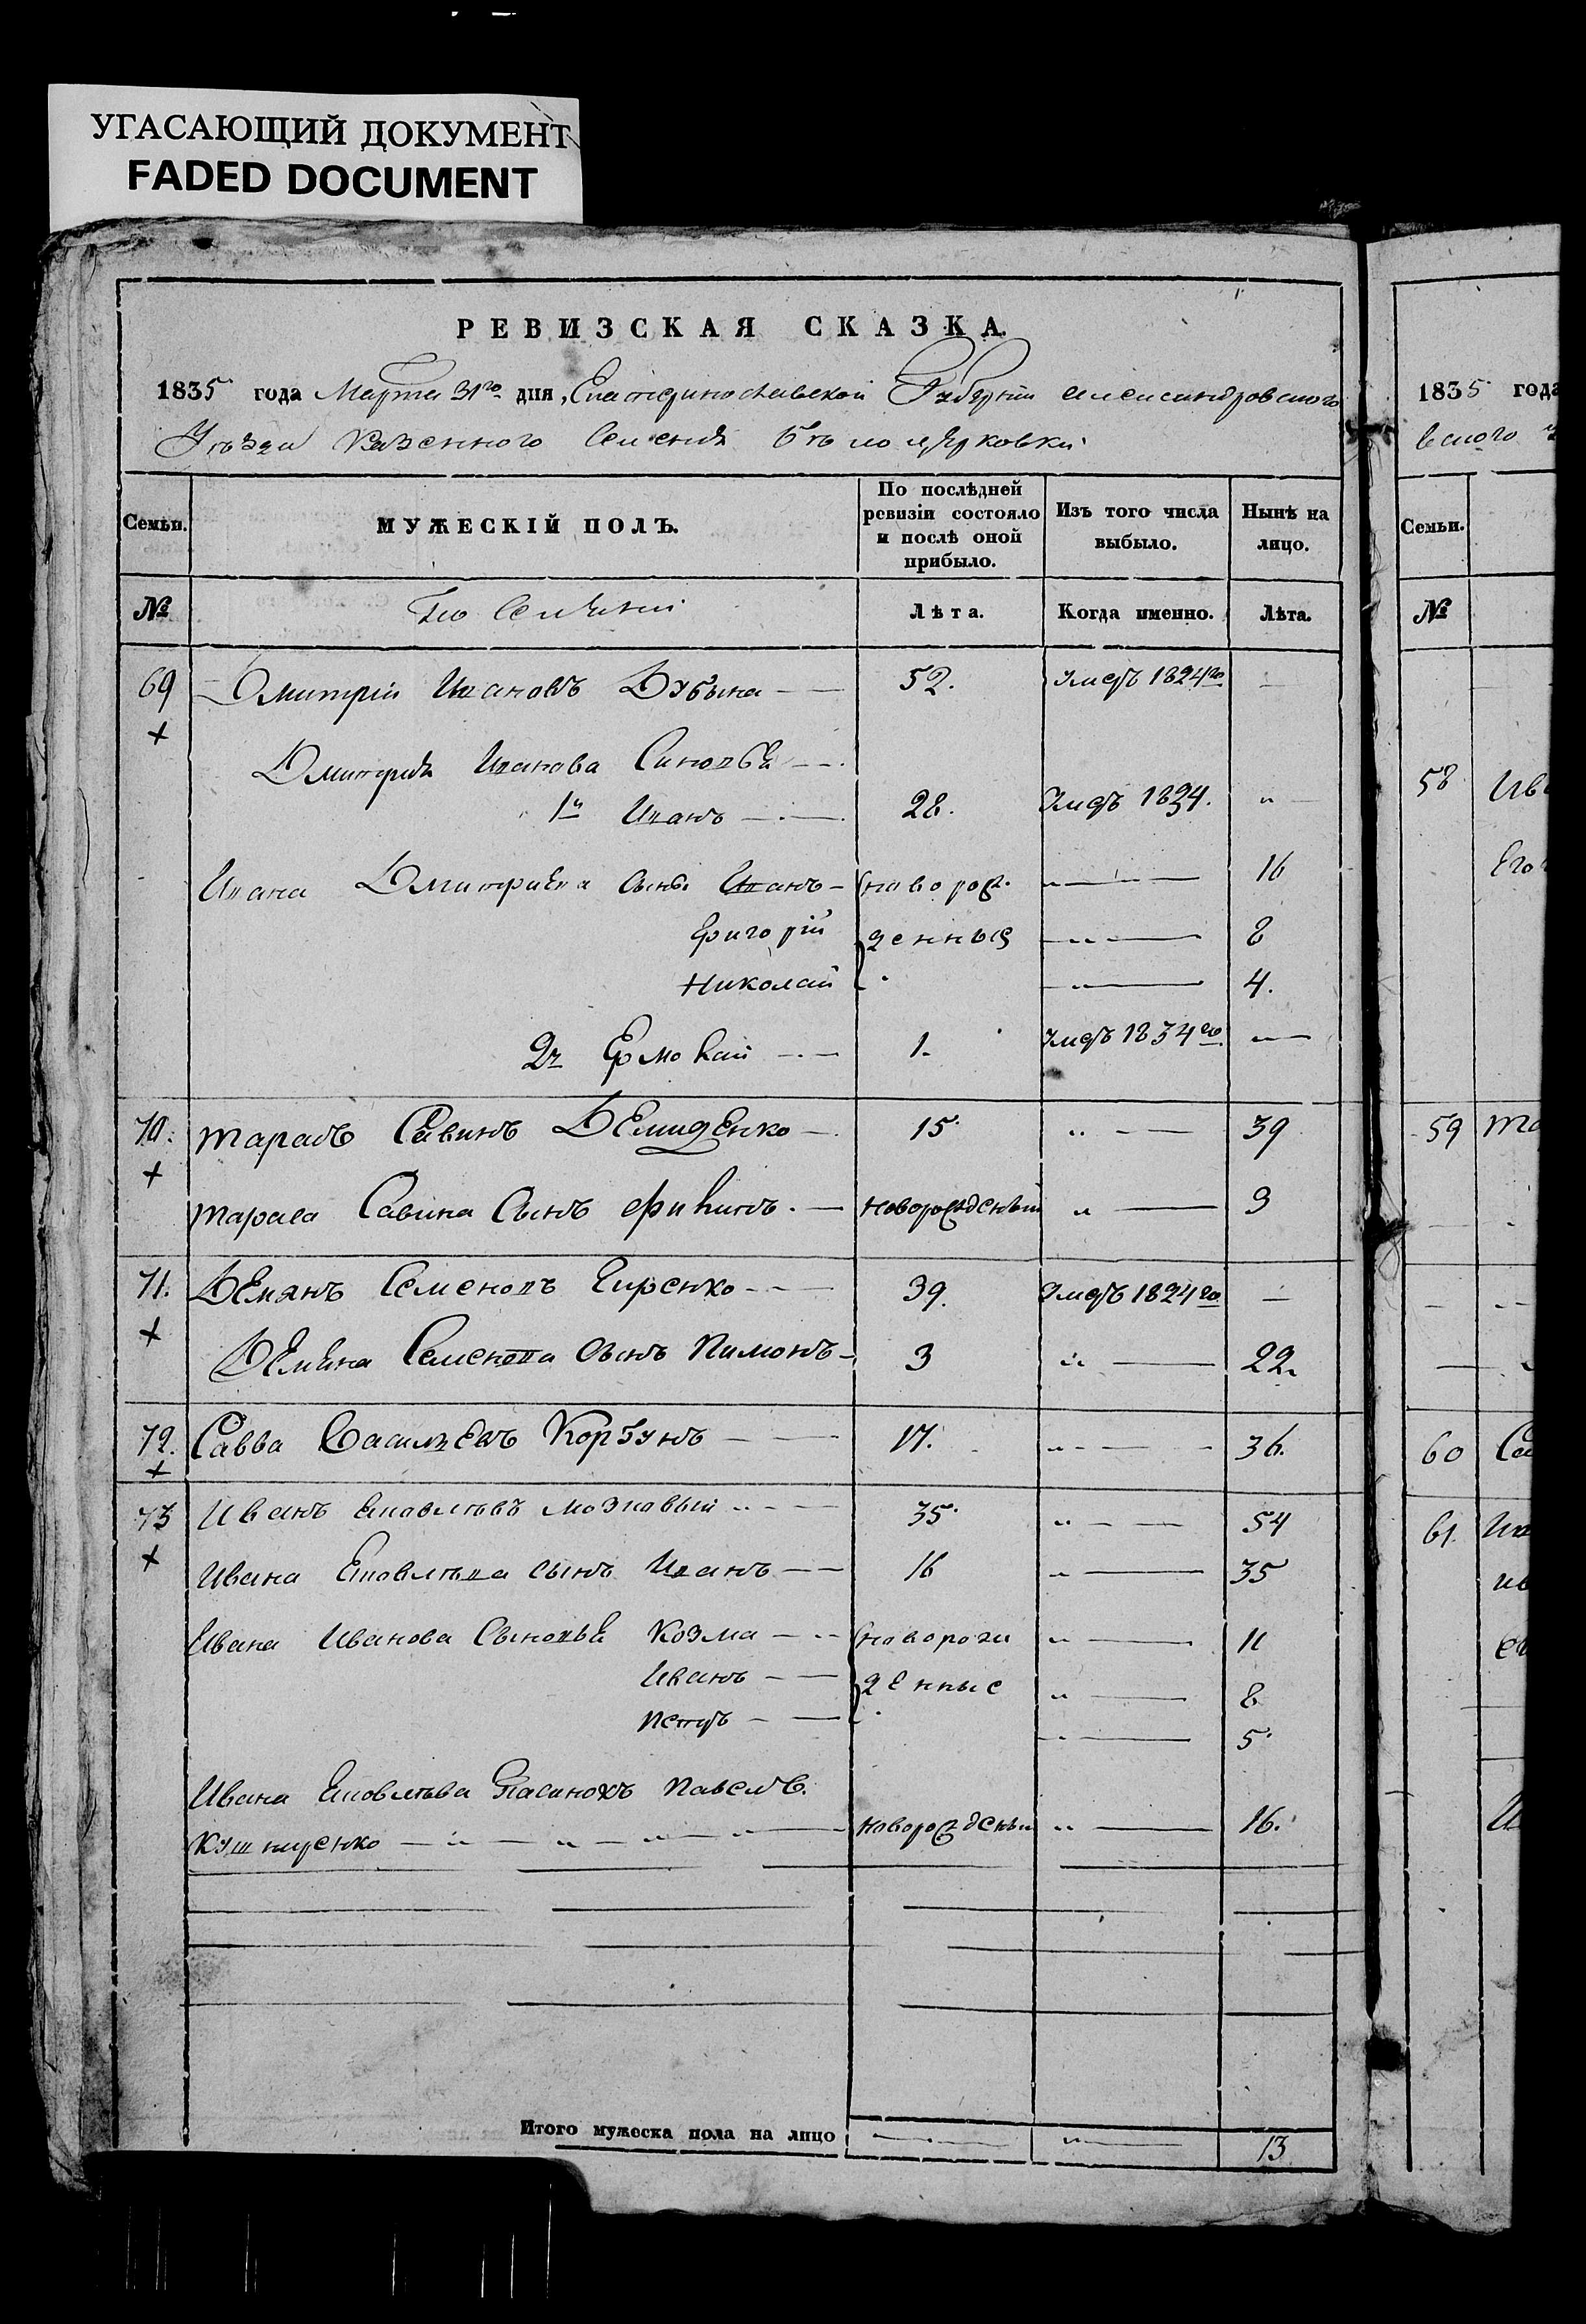 УГАСАЮЩИЙ ДОКУМЕНТ
FADED DOCUMENT
РЕВИЗСКАЯ СКАЗКА.
1835 года Марта 31го дня, Екатеринославской Губерніи Александровского
Уѣзда Казенного Селенія Бѣлоцерковки
Семьи. МУЖЕСКІЙ ПОЛЪ. По послѣдней ревизіи состояло и послѣ оной прибыло. Изъ того числа выбыло. Нынѣ на лицо.
№ Лѣта. Когда именно. Лѣта.
69 Дмитрій Ивановъ Дубына 52. Умеръ 1824го —
Дмитрія Иванова Синовья
1й Иванъ 28. Умеръ 1834. "
Ивана Дмитриева Сыны Иванъ новорож- " — 16
Григорій денныя " — 8
Николай " — 4.
2й Ермолай 1. Умеръ 1834го " —
70. Тарасъ Савинъ Демиденко 15. " — 39
Тараса Савина Сынъ Филипъ новорожденый " — 9
71. Демянъ Семеновъ Гиренко 39. Умеръ 1824го —
Демяна Семенова сынъ Пимонъ 3 " — 22.
72. Савва Васильевъ Корбунъ 17. " — 36.
73 Иванъ Яковлѣвъ Мозговый 35. " — 54
Ивана Яковлѣва сынъ Иванъ 16 " — 35
Ивана Иванова Сыновья Козма новорож " — 11
Иванъ денные " — 8
Петръ " — 5.
Ивана Яковлѣва Пасинокъ Павелъ
Кушниренко новорожденый " — 16.
Итого мужеска пола на лицо — " — 13
1835 года
Семьи.
№
58 Ив
Его
59 Та
60 Са
61. Ив
Ив